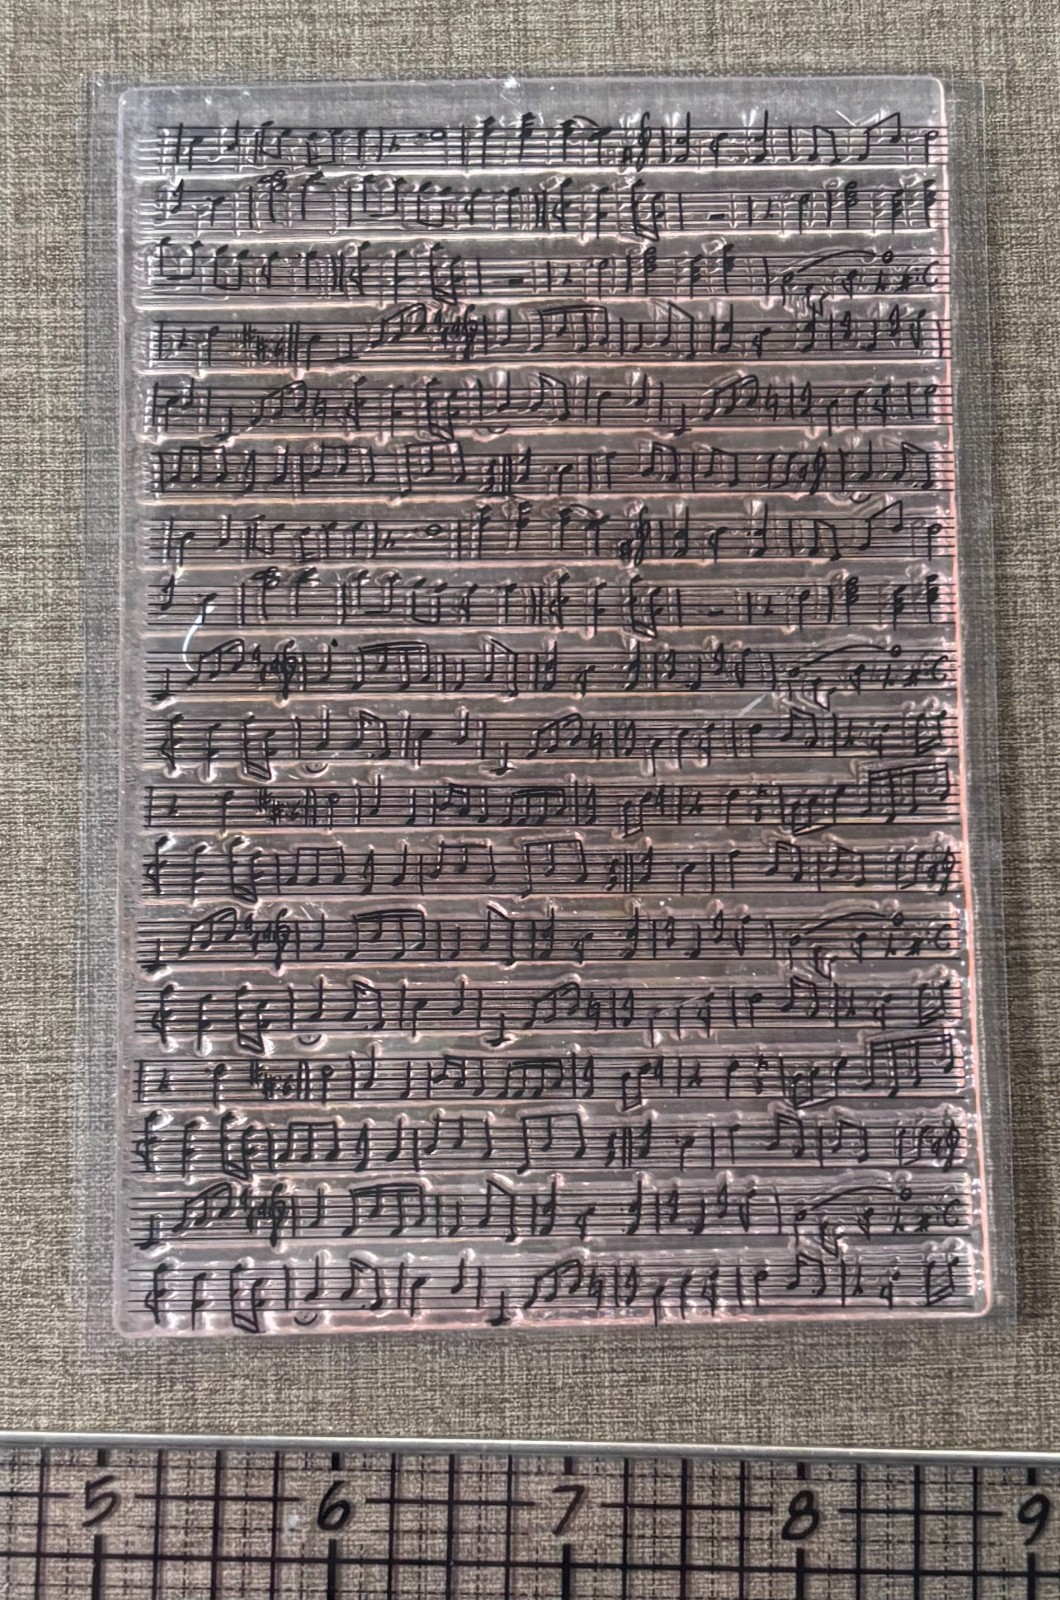 5 6 7 8 9